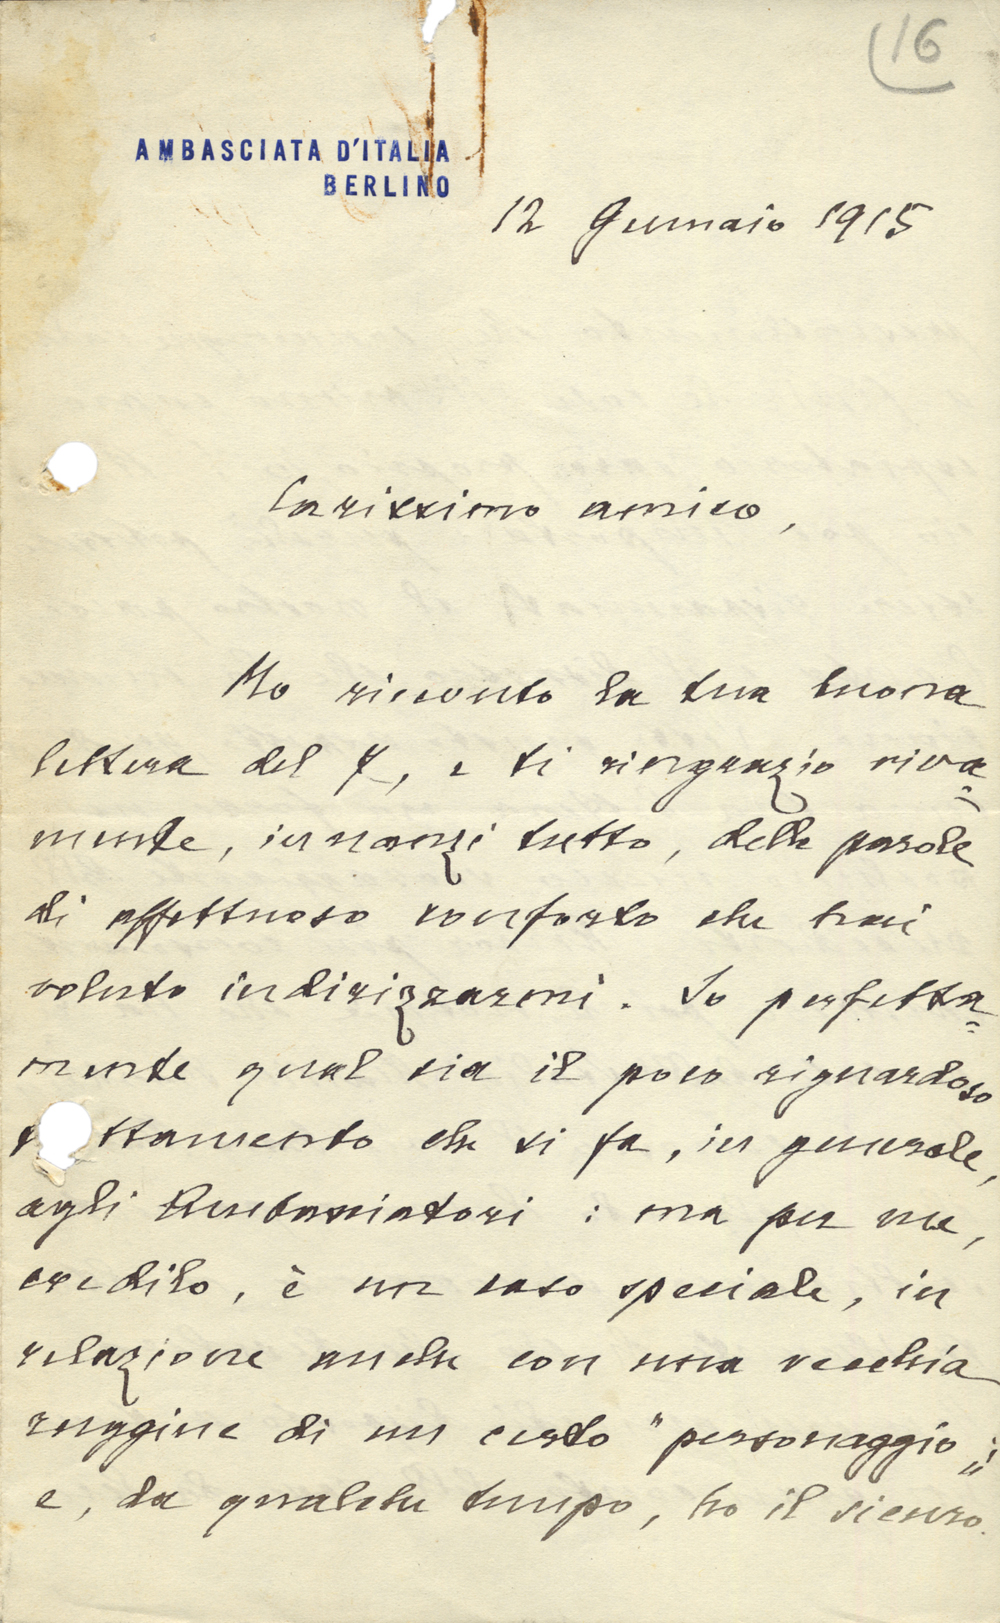 16
AMBASCIATA D'ITALIA
BERLINO
12 Gennaio 1915
Carissimo amico,
Ho ricevuto la tua buona
lettera del 7, e ti ringrazio viva=
mente, innanzi tutto, delle parole
di affettuoso conforto che hai
voluto indirizzarmi. So perfetta=
mente qual sia il poco riguardoso
trattamento che si fa, in generale,
agli Ambasciatori : ma per me,
credilo, è un caso speciale, in
relazione anche con una vecchia
ruggine di un certo "personaggio";
e, da qualche tempo, ho il sicuro